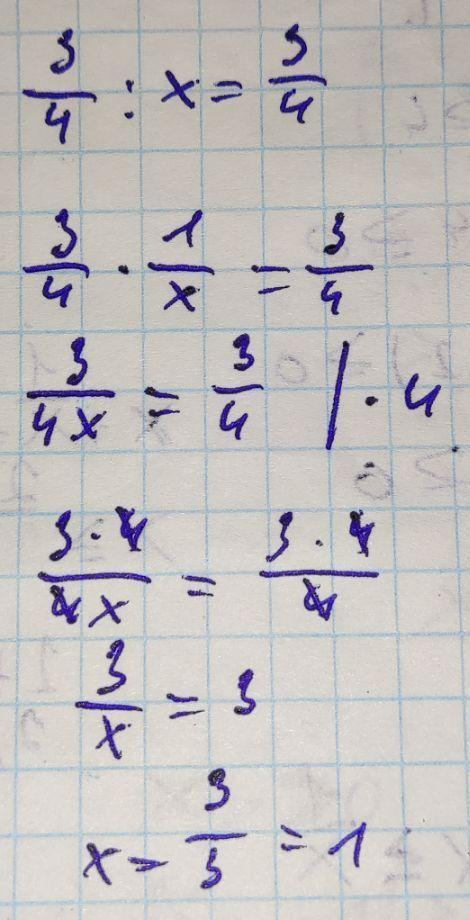 3/4 : x = 3/4
3/4 · 1/x = 3/4
3/4x = 3/4 | · 4
3·4/4x = 3·4/4
3/x = 3
x = 3/3 = 1